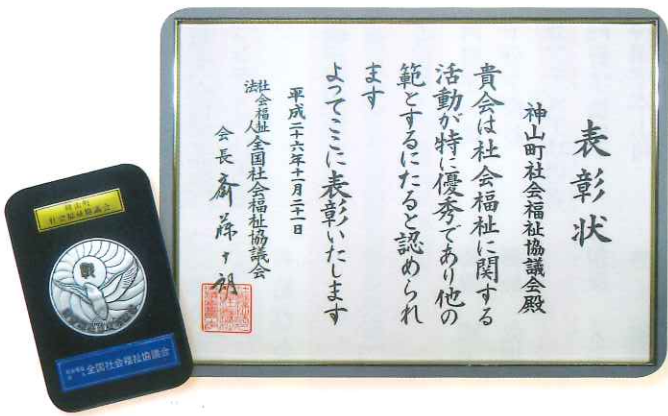 表彰状
神山町社会福祉協議会殿
貴会は社会福祉に関する
活動が特に優秀であり他の
範とするにたると認められ
ます
よってここに表彰いたします
平成二十六年十一月二十一日
社会福祉
法人
全国社会福祉協議会
会長 斎藤十朗
神山町
社会福祉協議会
全国社会福祉協議会